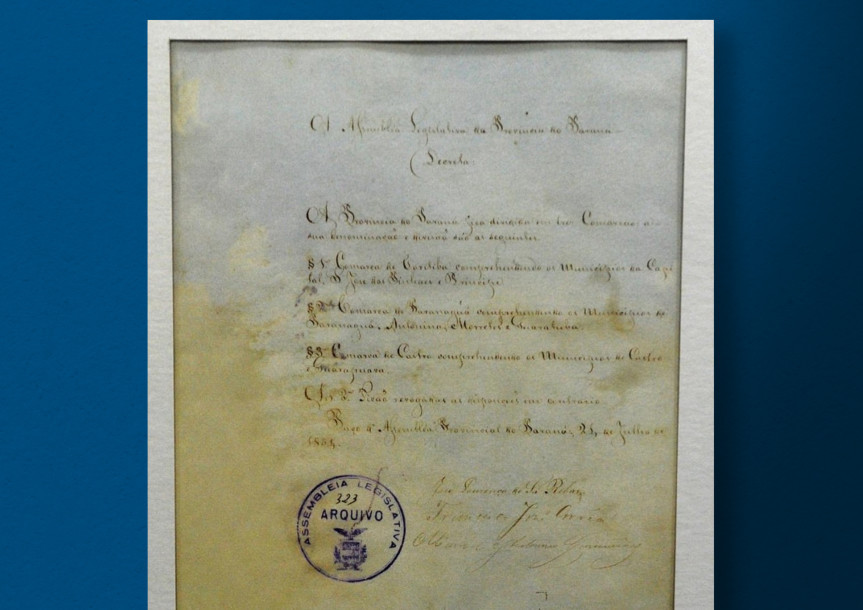 A Assemblea Legislativa da Provincia do Paraná
Decreta
A Provincia do Paraná fica dividida em tres Comarcas a
sua denominação e divisão são as seguintes
§ 1º Comarca de Coritiba comprehendendo os Municipios da Capi
tal, S. José dos Pinhaes e Principe
§ 2º Comarca de Paranaguá comprehendendo os Municipios de
Paranaguá, Antonina, Morretes e Guaratuba
§ 3º Comarca de Castro comprehendendo os Municipios de Castro
e Guarapuava
Art 2º Ficão revogadas as disposições em contrario
Paço d' Assemblea Provincial do Paraná, 21, de Julho de
1854
ASSEMBLEIA LEGISLATIVA
323
ARQUIVO
Francisco José Corrêa